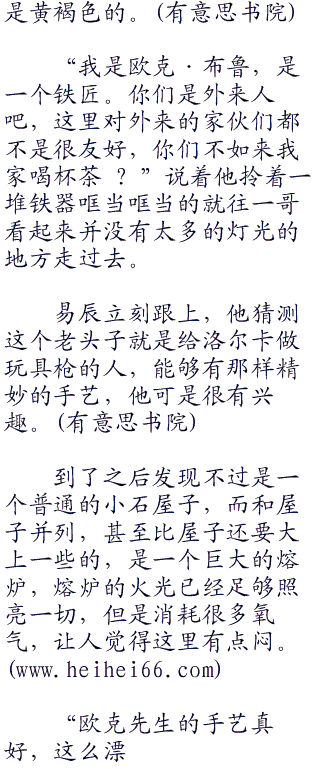 是黄褐色的。(有意思书院)
“我是欧克·布鲁，是
一个铁匠。你们是外来人
吧，这里对外来的家伙们都
不是很友好，你们不如来我
家喝杯茶 ？”说着他拎着一
堆铁器哐当哐当的就往一哥
看起来并没有太多的灯光的
地方走过去。
易辰立刻跟上，他猜测
这个老头子就是给洛尔卡做
玩具枪的人，能够有那样精
妙的手艺，他可是很有兴
趣。(有意思书院)
到了之后发现不过是一
个普通的小石屋子，而和屋
子并列，甚至比屋子还要大
上一些的，是一个巨大的熔
炉，熔炉的火光已经足够照
亮一切，但是消耗很多氧
气，让人觉得这里有点闷。
(www.heihei66.com)
“欧克先生的手艺真
好，这么漂